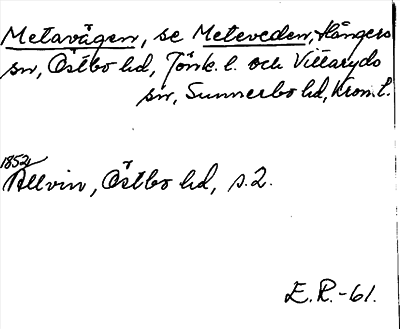 Metavägen, se Meteveden, Hångers
sn, Östbo hd, Jönk. l. och Vittaryds
sn, Sunnerbo hd, Kron. l.
1852
Allvin, Östbo hd, s. 2.
E. R. -61.